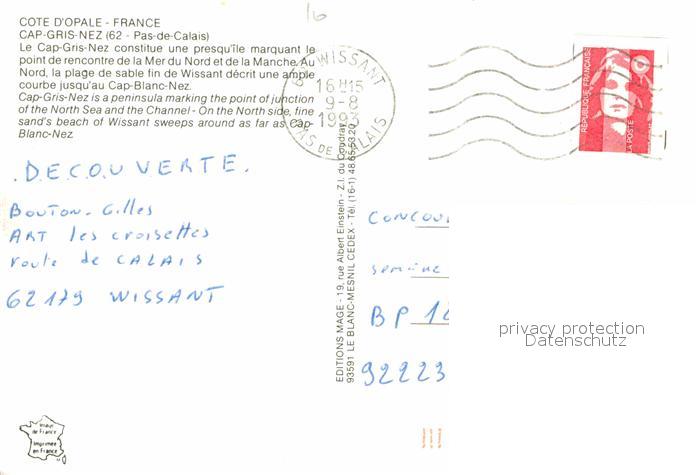 16
COTE D'OPALE - FRANCE
CAP-GRIS-NEZ (62 - Pas-de-Calais)
Le Cap-Gris-Nez constitue une presqu'île marquant le
point de rencontre de la Mer du Nord et de la Manche. Au
Nord, la plage de sable fin de Wissant décrit une ample
courbe jusqu'au Cap-Blanc-Nez.
Cap-Gris-Nez is a peninsula marking the point of junction
of the North Sea and the Channel - On the North side, fine
sand's beach of Wissant sweeps around as far as Cap-
Blanc-Nez
WISSANT
16 H15
9-8
1993
PAS DE CALAIS
RÉPUBLIQUE FRANÇAISE
LA POSTE
.D.E.C.O.U.VERTE.
BOUTON. Gilles
ART les croisettes
route de CALAIS
62179 WISSANT
EDITIONS MAGE - 19, rue Albert Einstein - Z.I. du Coudray
93591 LE BLANC-MESNIL CEDEX - Tél. (16-1) 48.65.53.20
CONCOU
semaine
BP 12
92223
privacy protection
Datenschutz
Image
de France
Imprimée
en France